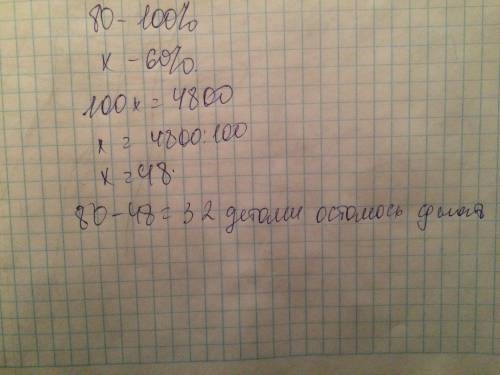 80 - 100%
x - 60%.
100x = 4800
x = 4800:100
x = 48.
80 - 48 = 32 детали осталось сделать